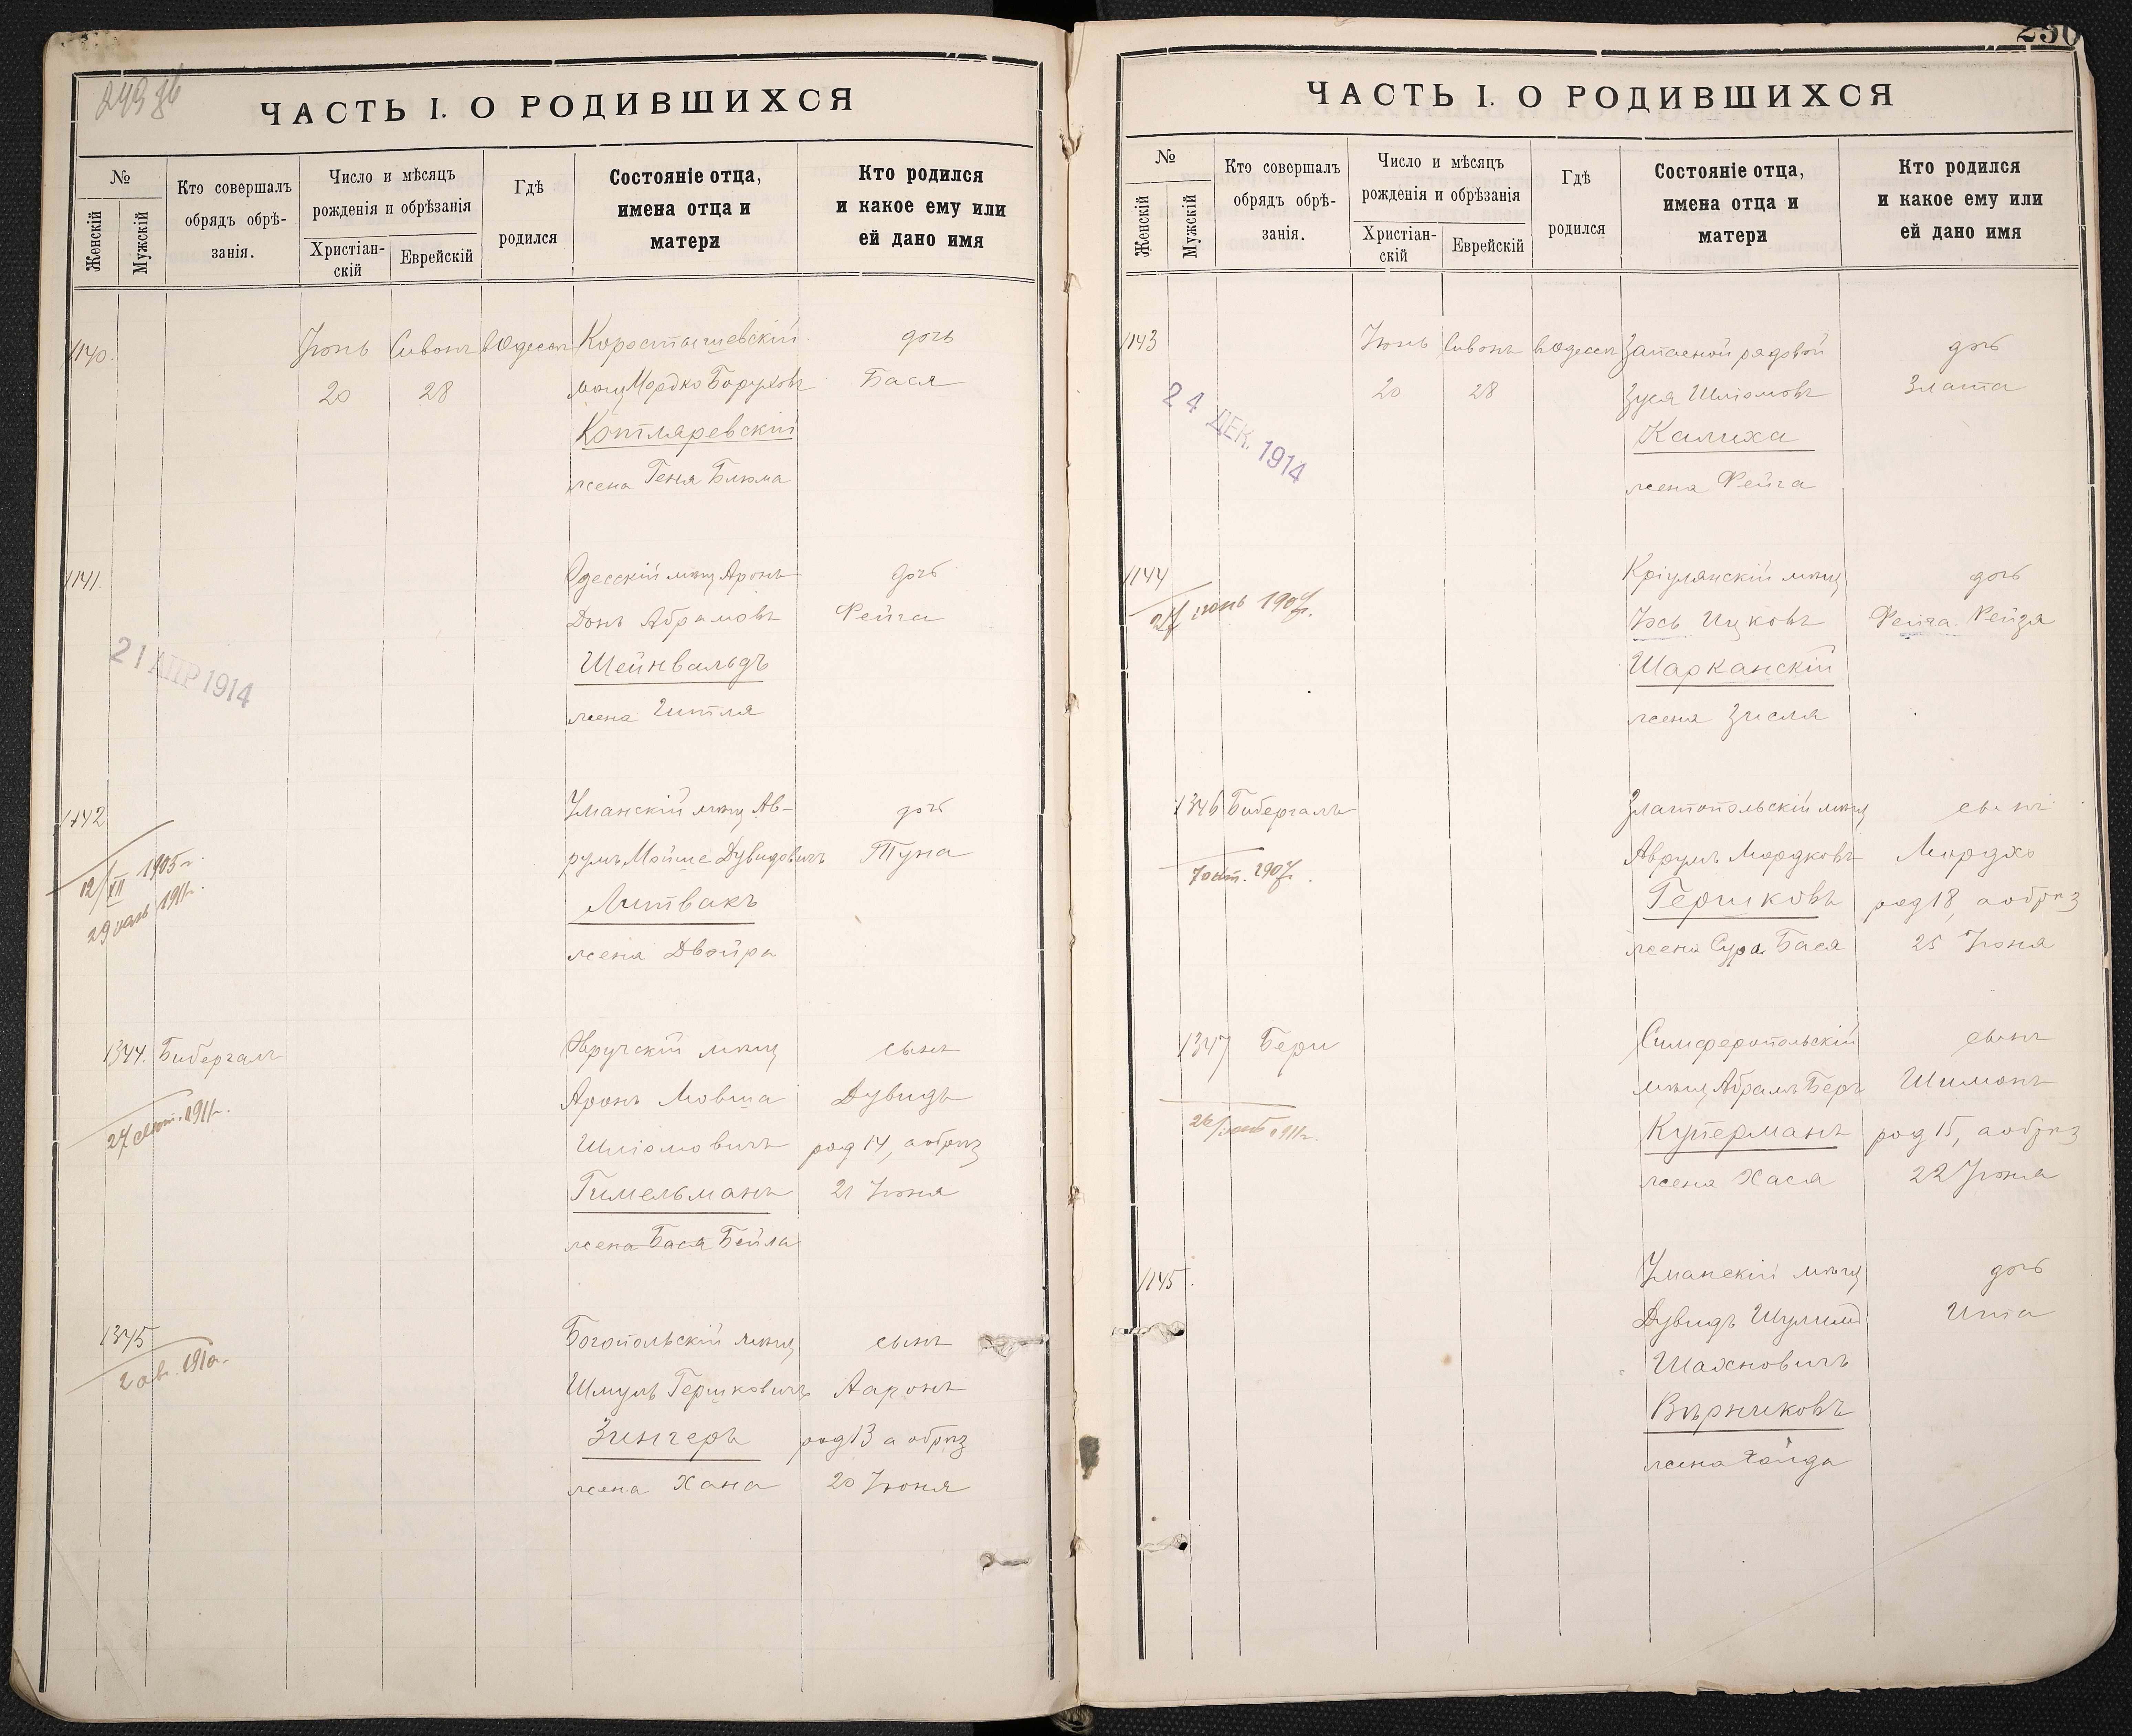 249 об
ЧАСТЬ I. О РОДИВШИХСЯ
№
Женскій
Мужскій
Кто совершалъ
обрядъ обрѣ-
занія.
Число и мѣсяцъ
рожденія и обрѣзанія
Христіан-
скій
Еврейскій
Гдѣ
родился
Состояніе отца,
имена отца и
матери
Кто родился
и какое ему или
ей дано имя
1140. Іюнь Сивонъ въ Одессѣ Коростышевскій дочь
20 28 мѣщ Мордко Боруховъ Бася
Котляревскій
жена Геня Блюма
1141. Одесскій мѣщ Аронъ дочь
Донъ Абрамовъ Фейга
Шейнвальдъ
21 АПР 1914
жена Гитля
1142 Уманскій мѣщ Ав- дочь
румъ Мойше Дувидовичъ Туна
12/XII 1905 г.
Литвакъ
29 1911г.
жена Двойра
1344. Бибергалъ Овручскій мѣщ сынъ
Аронъ Мовша Дувидъ
27 сент. 1911г.
Шліомовичъ род 14, а обрѣз
Гимельманъ 21 Іюня
жена Бася Бейла
1345 Богопольскій мѣщ сынъ
2 ав. 1910г.
Шмуль Гершковичъ Ааронъ
Зингеръ род 13 а обрѣз
жена Хана 20 Іюня
250
ЧАСТЬ I. О РОДИВШИХСЯ
№
Женскій
Мужскій
Кто совершалъ
обрядъ обрѣ-
занія.
Число и мѣсяцъ
рожденія и обрѣзанія
Христіан-
скій
Еврейскій
Гдѣ
родился
Состояніе отца,
имена отца и
матери
Кто родился
и какое ему или
ей дано имя
1143 Іюнь Сивонъ въ Одессѣ Запасной рядовой дочь
20 28 Зуся Шліомовъ Злата
24 ДЕК. 1914
Калиха
жена Фейга
1144 Кріулянскій мѣщ дочь
27 1907г.
Іось Ицковъ Фейга Рейзя
Шарканскій
жена Зисля
1346 Бибергалъ Златопольскій мѣщ сынъ
Аврумъ Мордковъ Мордхо
7 окт. 1907г.
Гершковъ род 18, а обрѣз
жена Сура Бася 25 Іюня
1347 Бери Симферопольскій сынъ
мѣщ Абрамъ Беръ Шимонъ
26 1911г.
Куперманъ род 15, а обрѣз
жена Хася 22 Іюня
1145. Уманскій мѣщ дочь
Дувидъ Шулимъ Ита
Шахновичъ
Вѣрниковъ
жена